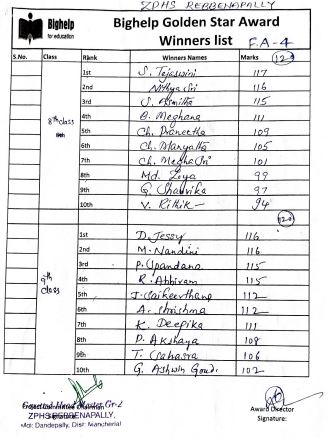 ZPHS REBBENAPALLY
Bighelp
for education
Bighelp Golden Star Award
Winners list F.A-4
S.No. Class Rank Winners Names Marks 120
8th class
1st S. Tejaswini 117
2nd Nithya Sri 116
3rd S. Asmitha 115
4th B. Meghana 111
5th Ch. Praneetha 109
6th Ch. Manyatha 105
7th Ch. Megha Sri 101
8th Md. Zoya 99
9th G. Shanvika 97
10th V. Rithik 94
120
9th class
1st D. Jessy 116
2nd M. Nandini 116
3rd P. Spandana 115
4th R. Abhiram 115
5th J. Saikeerthana 112
6th A. Shrishma 112
7th K. Deepika 111
8th P. Akshaya 108
9th T. Sahasra 106
10th G. Ashwin Goud 102
Gr-I
ZPHS REBBENAPALLY,
Mdl: Dandepally, Dist: Mancherial
Award Director
Signature: